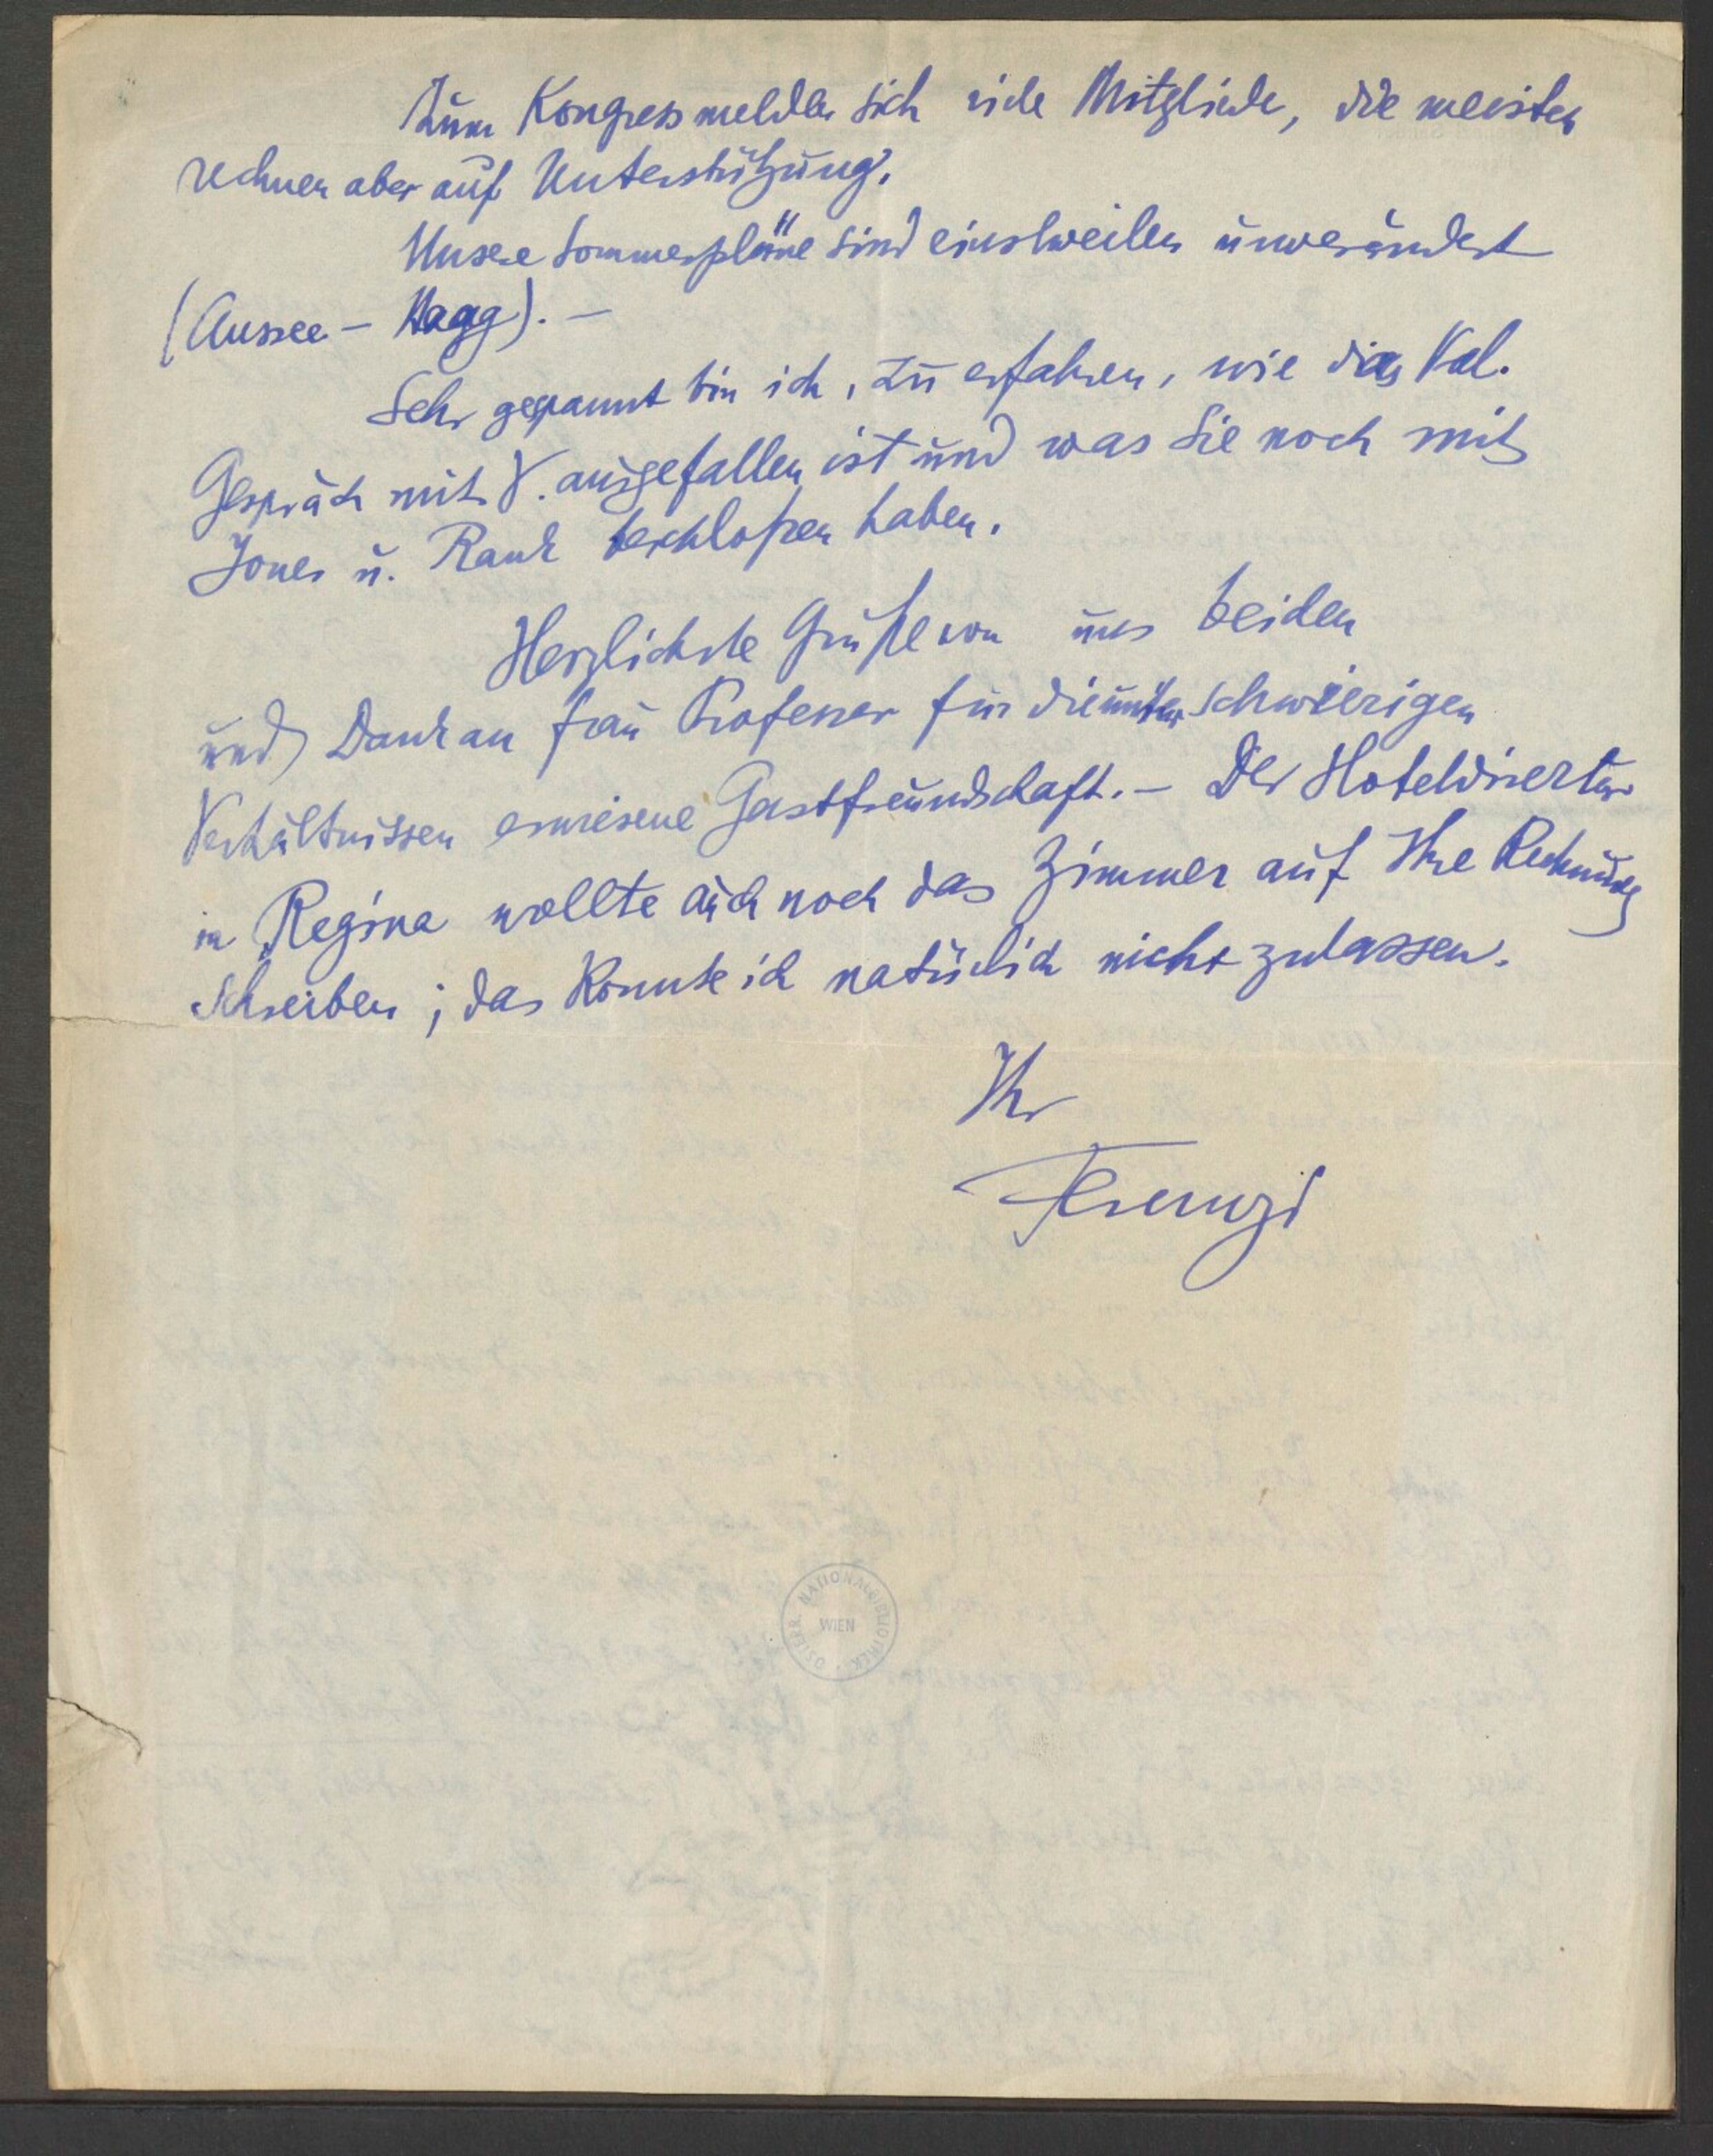 Zum Kongress melden sich viele Mitglieder, die meisten
rechnen aber auf Unterstützung.
Unsere Sommerpläne sind einstweilen unverändert
(Aussee – Haag). –
Sehr gespannt bin ich, zu erfahren, wie das Val.
Gespräch mit V. ausgefallen ist und was Sie noch mit
Jones u. Rank beschloßen haben.
Herzlichste Grüße von uns beiden
und Dank an Frau Professor für die unter schwierigen
Verhältnissen erwiesene Gastfreundschaft. – Der Hoteldirektor
in Regina wollte auch noch das Zimmer auf Ihre Rechnung
schreiben; das konnte ich natürlich nicht zulassen.
Ihr
Ferenczi
ÖSTERR. NATIONALBIBLIOTHEK
WIEN